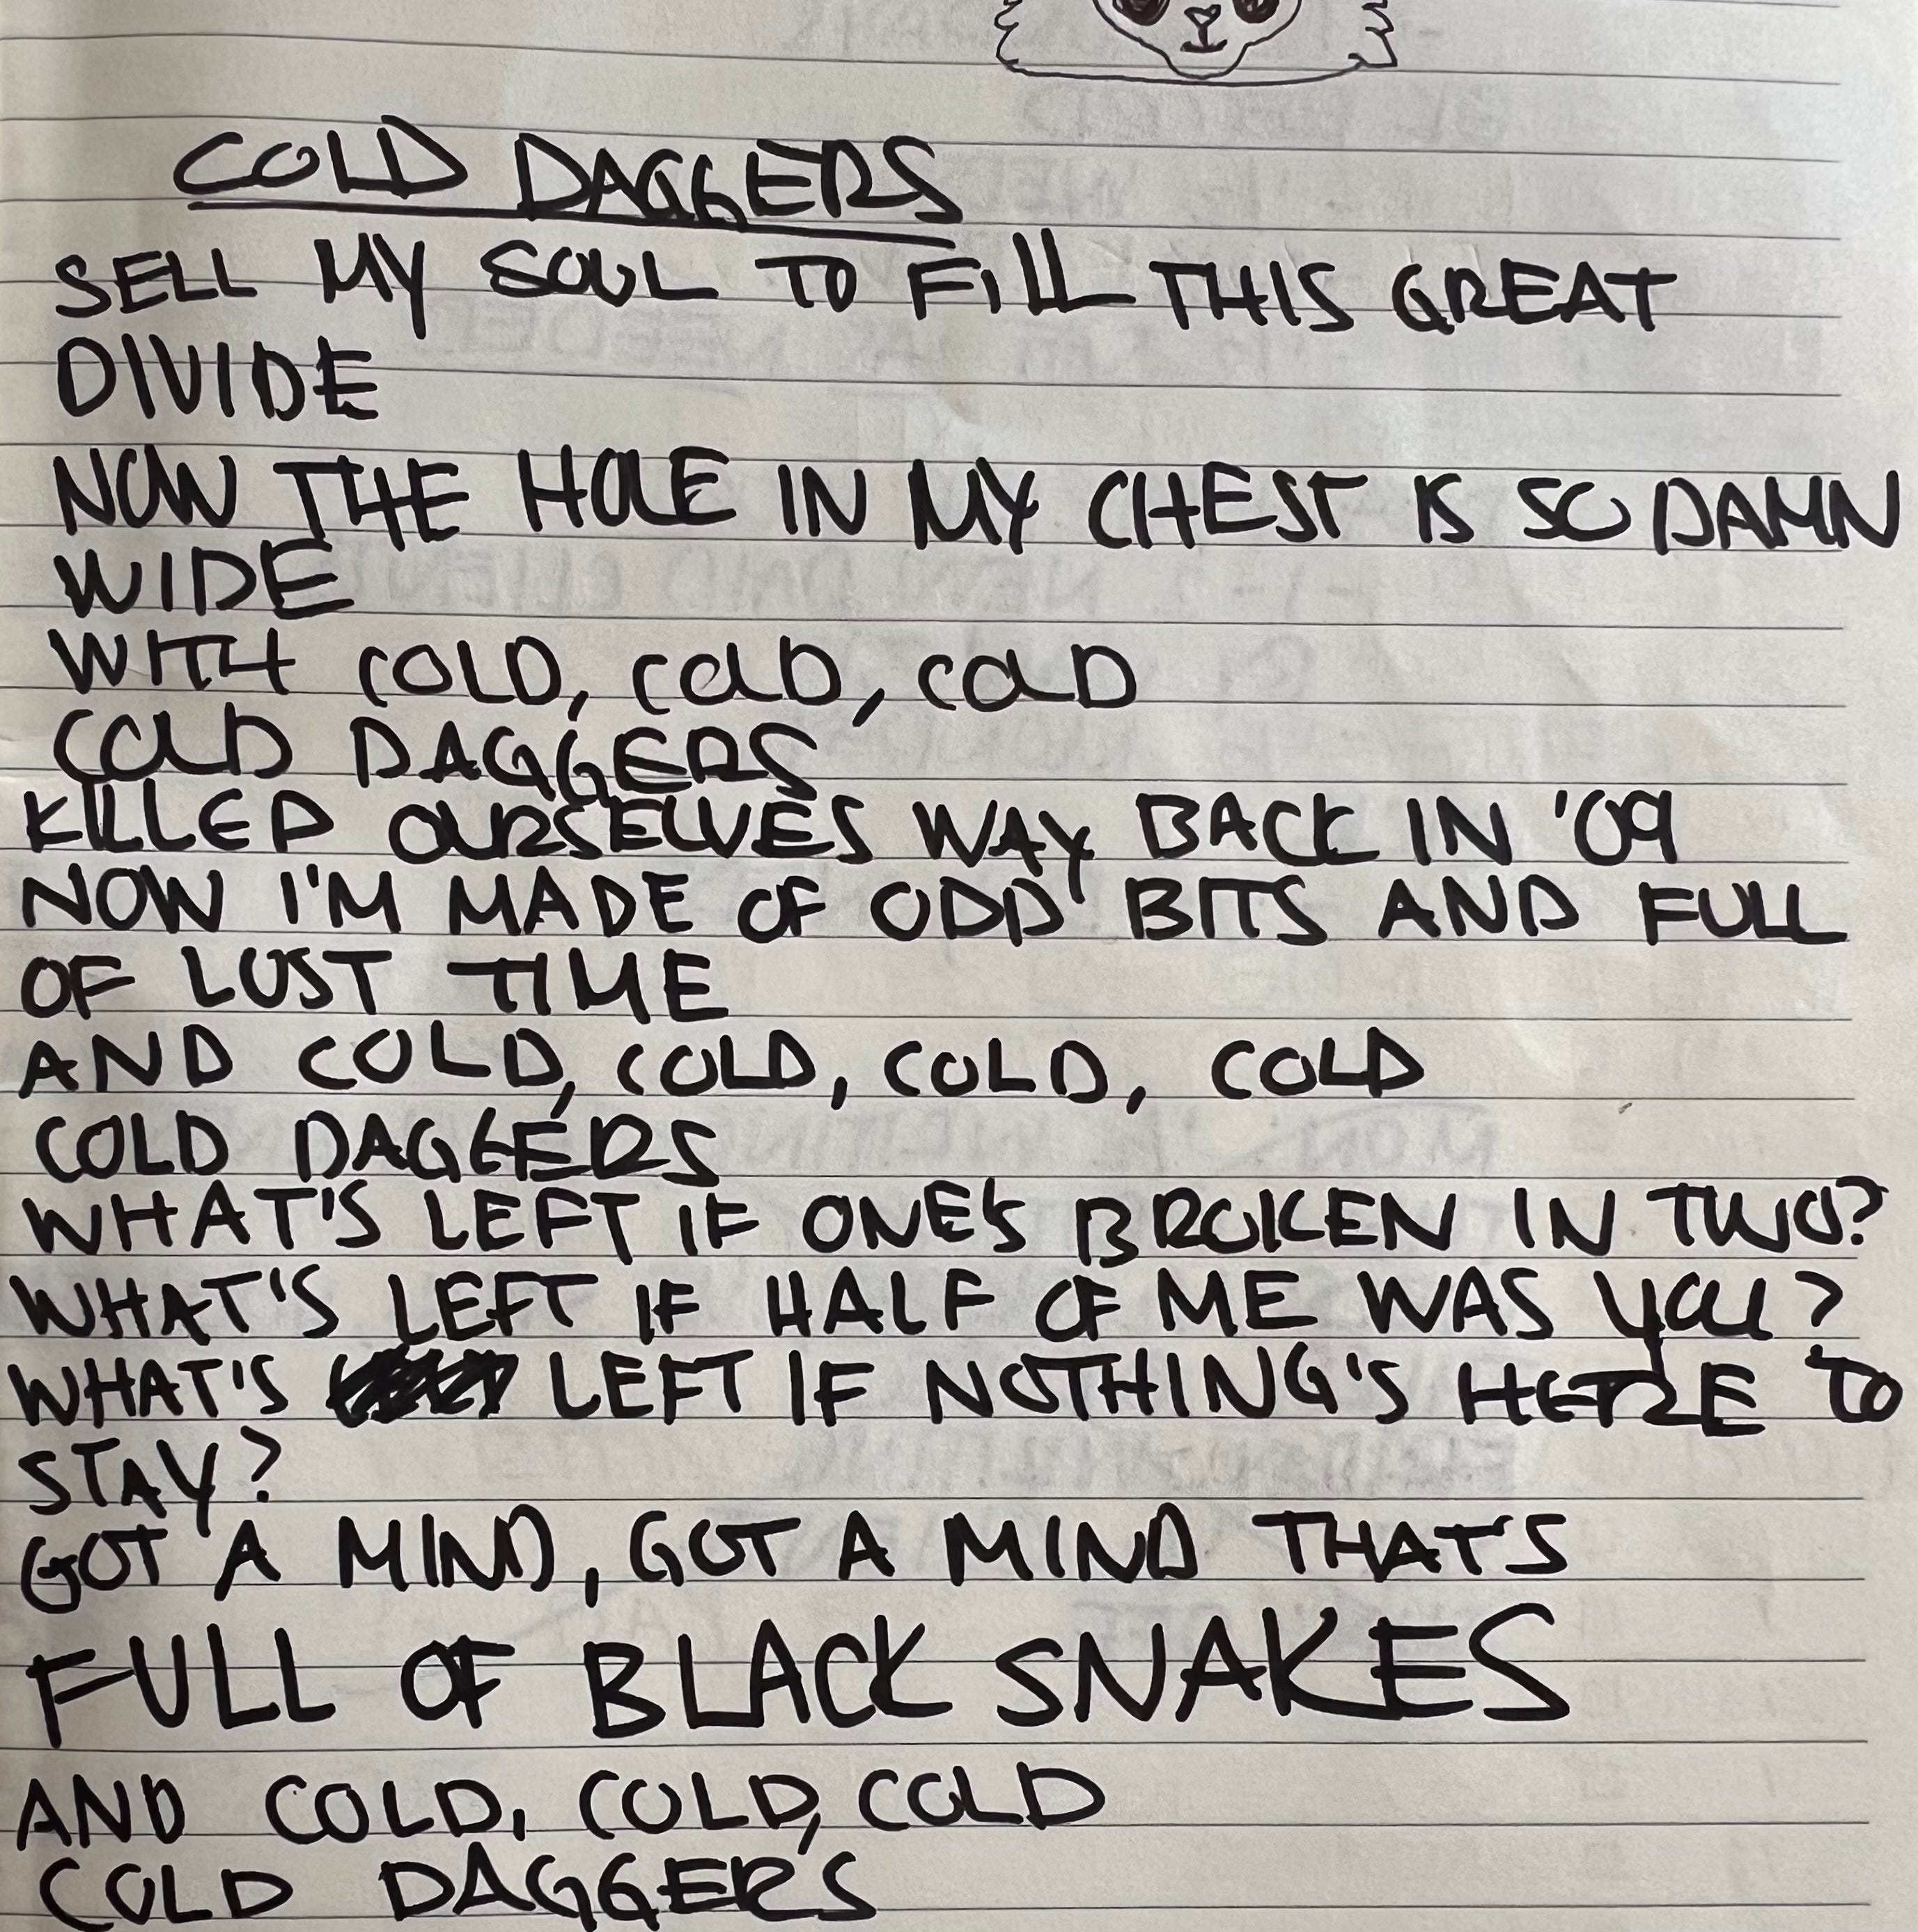 COLD DAGGERS
SELL MY SOUL TO FILL THIS GREAT
DIVIDE
NOW THE HOLE IN MY CHEST IS SO DAMN
WIDE
WITH COLD, COLD, COLD
COLD DAGGERS
KILLED OURSELVES WAY BACK IN '09
NOW I'M MADE OF ODD BITS AND FULL
OF LOST TIME
AND COLD, COLD, COLD, COLD
COLD DAGGERS
WHAT'S LEFT IF ONE'S BROKEN IN TWO?
WHAT'S LEFT IF HALF OF ME WAS YOU?
WHAT'S LEFT IF NOTHING'S HERE TO
STAY?
GOT A MIND, GOT A MIND THAT'S
FULL OF BLACK SNAKES
AND COLD, COLD, COLD
COLD DAGGERS